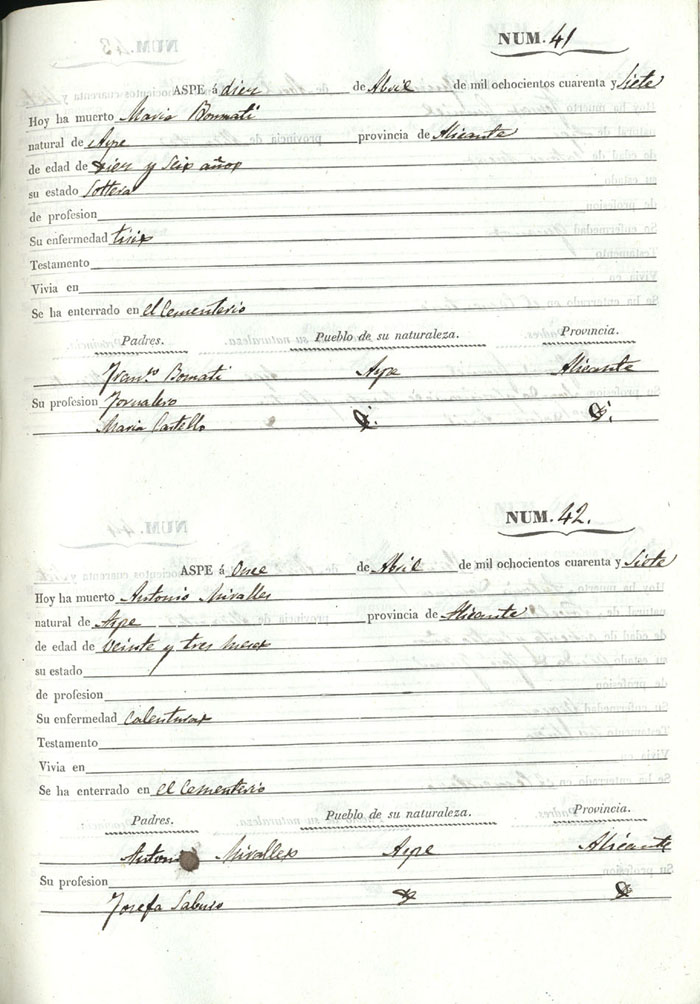 NUM. 41
ASPE á diez de Abril de mil ochocientos cuarenta y Siete
Hoy ha muerto Maria Bonmati
natural de Aspe provincia de Alicante
de edad de diez y seis años
su estado Soltera
de profesion
Su enfermedad tisis
Testamento
Vivia en
Se ha enterrado en el Cementerio
Padres. Pueblo de su naturaleza. Provincia.
Fran.co Bomati Aspe Alicante
Su profesion Jornalero
Maria Castello
NUM. 42.
ASPE á Once de Abril de mil ochocientos cuarenta y Siete
Hoy ha muerto Antonio Miralles
natural de Aspe provincia de Alicante
de edad de veinte y tres meses
su estado
de profesion
Su enfermedad Calenturas
Testamento
Vivia en
Se ha enterrado en el Cementerio
Padres. Pueblo de su naturaleza. Provincia.
Antonio Miralles Aspe Alicante
Su profesion
Josefa